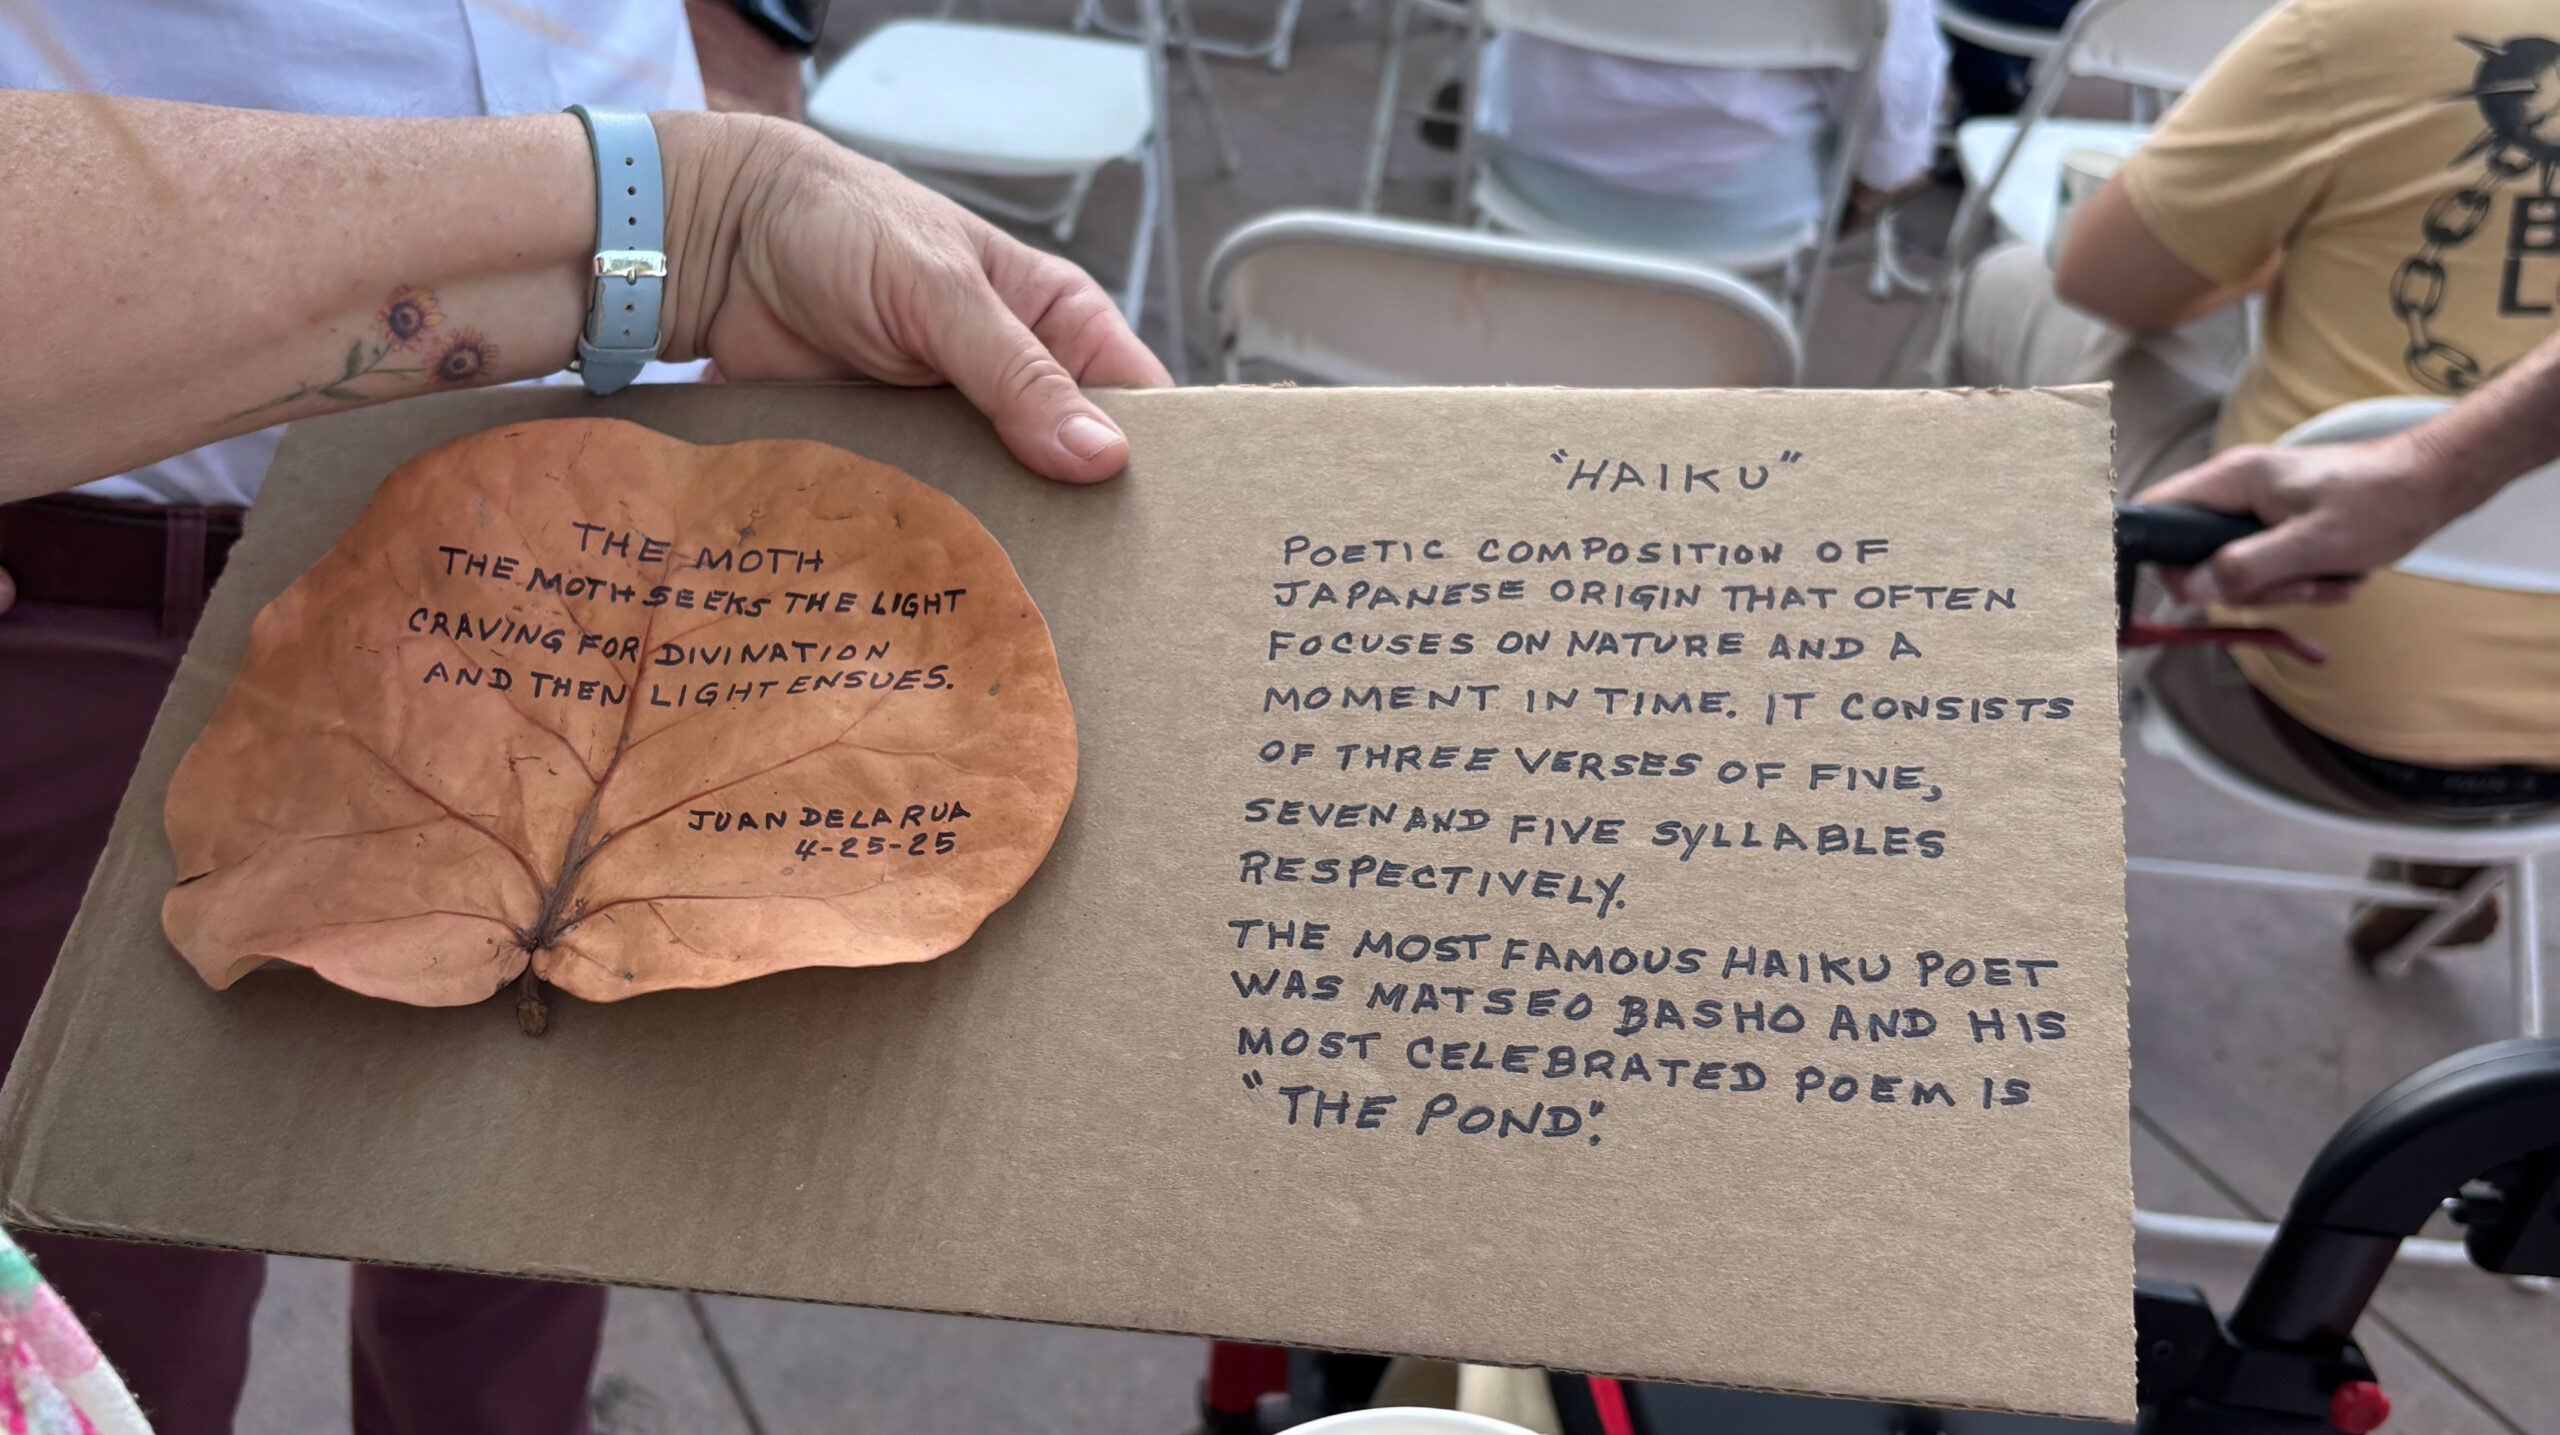 THE MOTH
THE MOTH SEEKS THE LIGHT
CRAVING FOR DIVINATION
AND THEN LIGHT ENSUES.
JUAN DE LA RUA
4-25-25
"HAIKU"
POETIC COMPOSITION OF
JAPANESE ORIGIN THAT OFTEN
FOCUSES ON NATURE AND A
MOMENT IN TIME. IT CONSISTS
OF THREE VERSES OF FIVE,
SEVEN AND FIVE SYLLABLES
RESPECTIVELY.
THE MOST FAMOUS HAIKU POET
WAS MATSEO BASHO AND HIS
MOST CELEBRATED POEM IS
"THE POND".